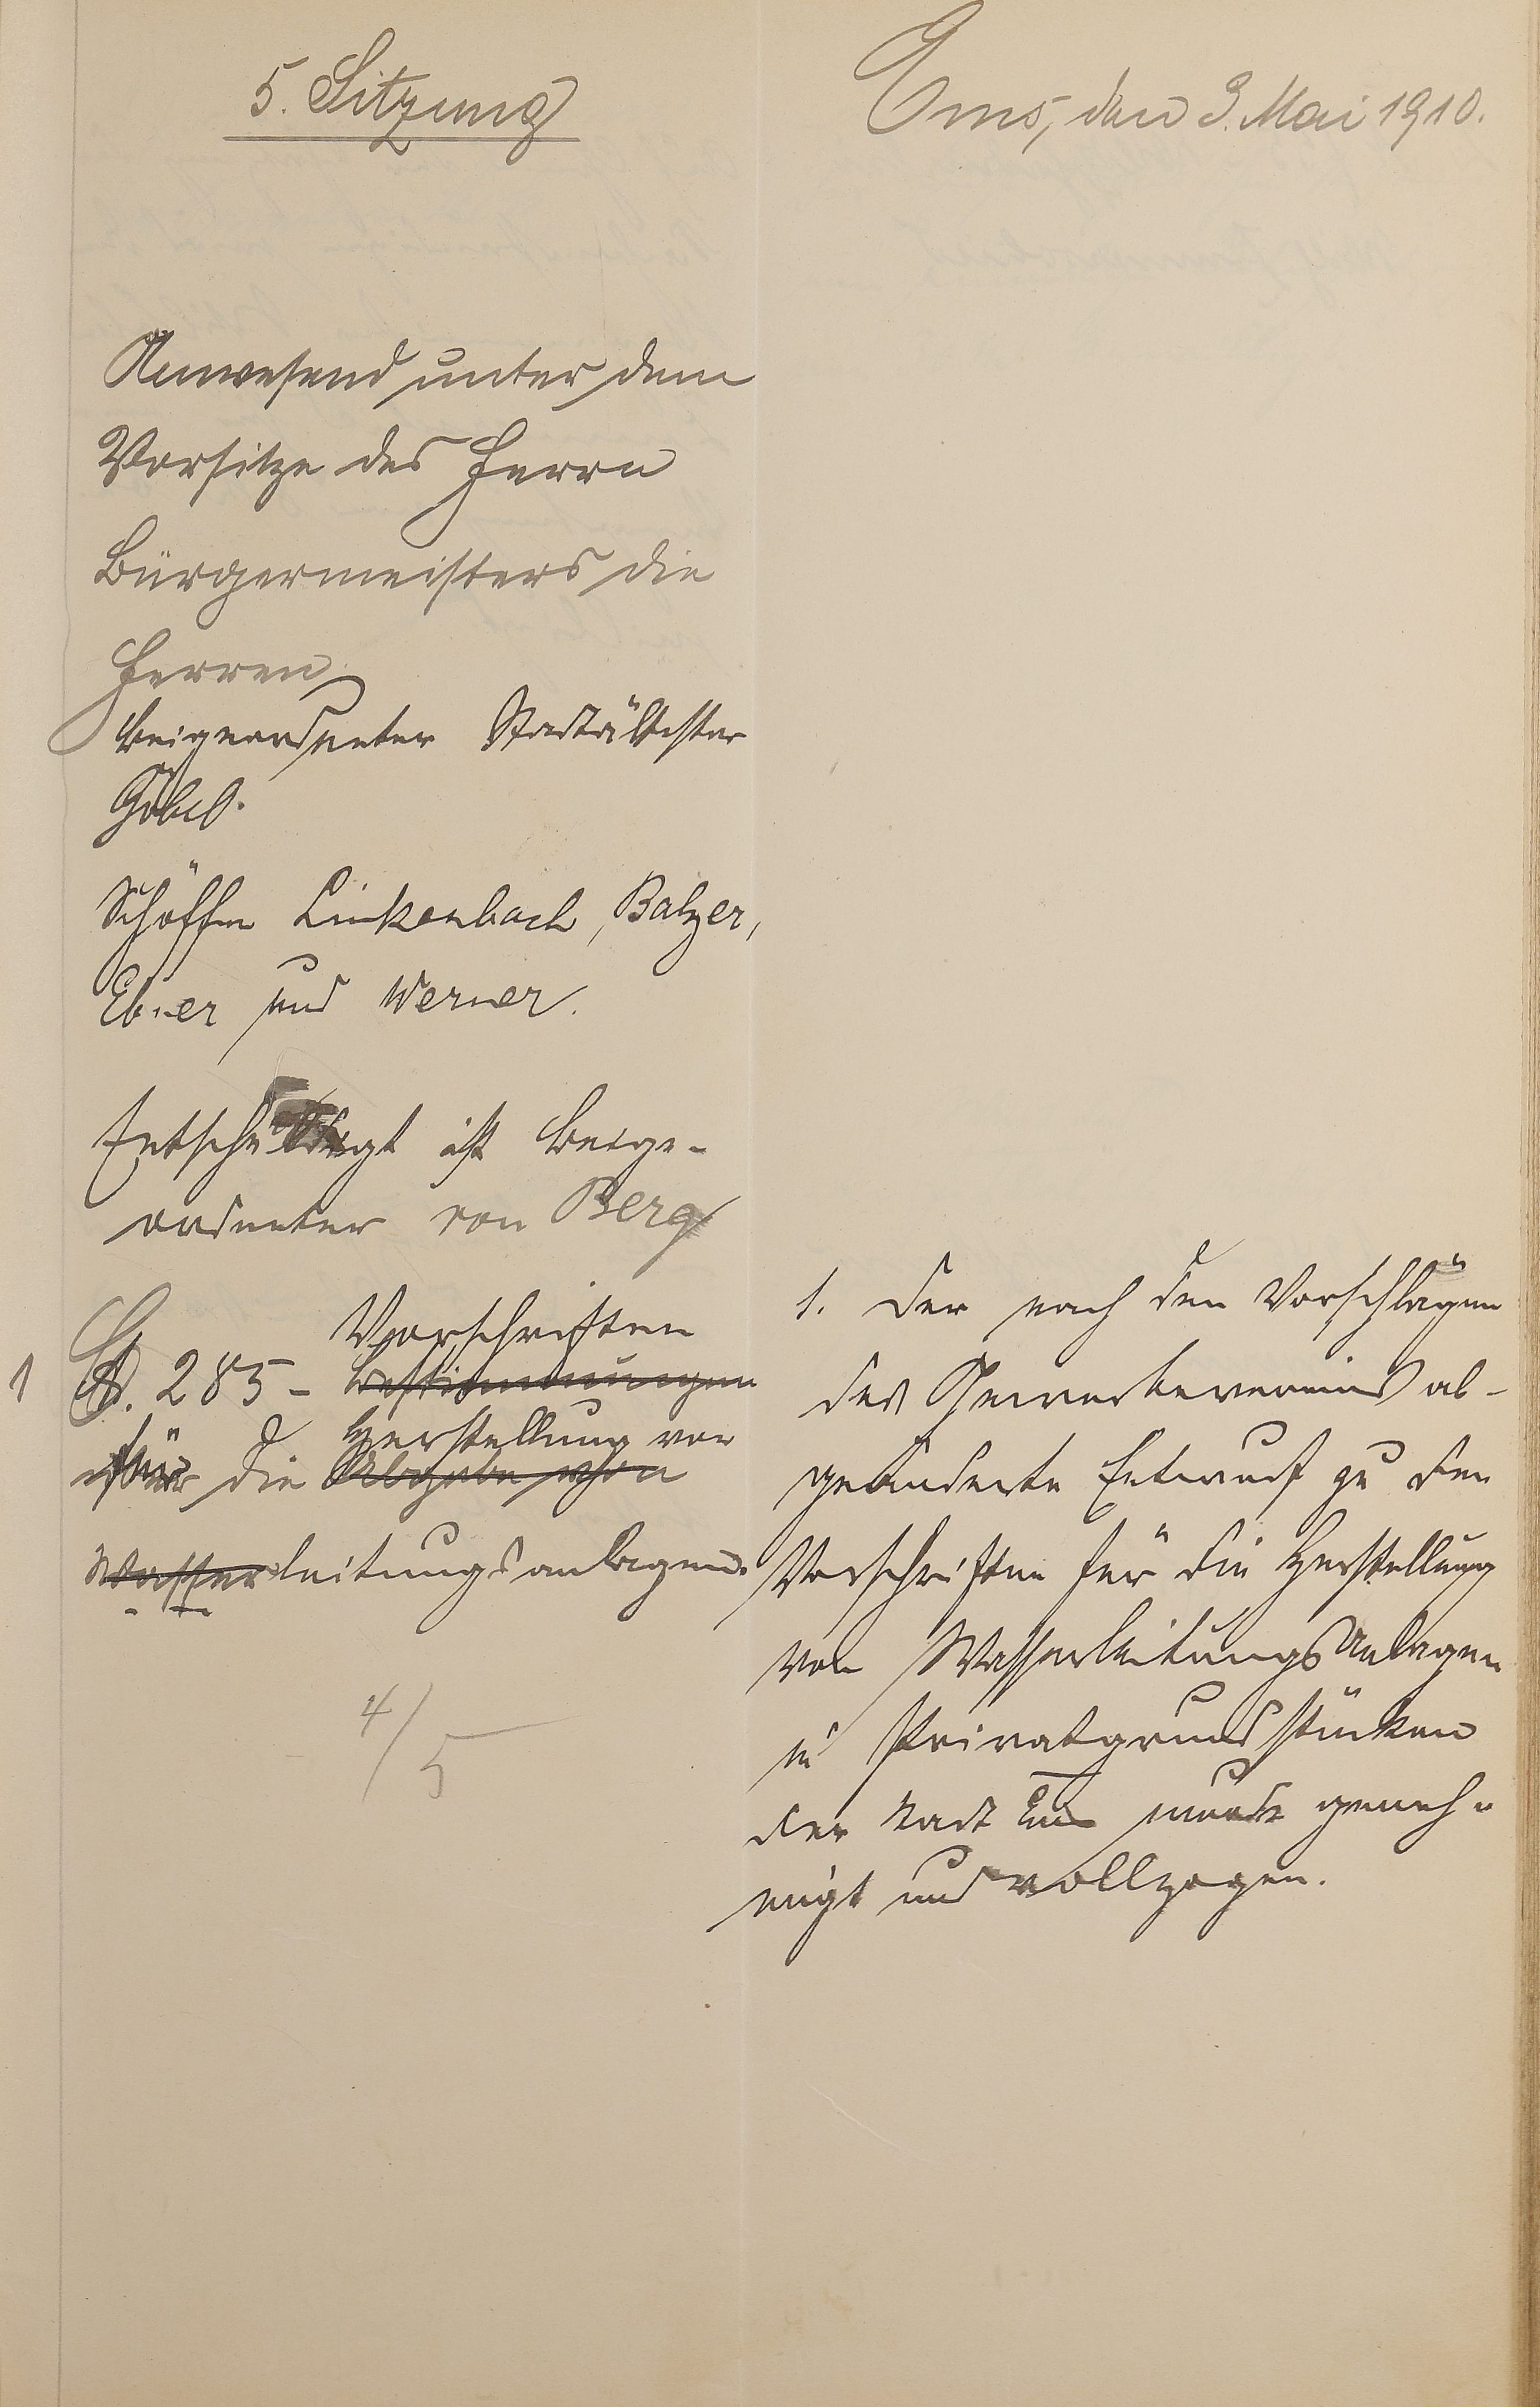 5. Sitzung
Ems, den 3. Mai 1910.
Anwesend unter dem
Vorsitze des Herrn
Bürgermeisters die
Herren
Beigeordneter Stadtältester
Göbel.
Schöffen Linkenbach, Balzer,
Ebner und Werner.
Entschuldigt ist Beige-
ordneter von Berg
Vorschriften
1 St. 285 - Bestimmungen
Herstellung von
für die Abgabe von
Wasserleitungsanlagen.
4/5
1. Der nach den Vorschlägen
des Gewerbevereins ab-
geänderte Entwurf zu den
Vorschriften für die Herstellung
von Wasserleitungsanlagen
in Privatgrundstücken
der Stadt Ems wurde geneh-
migt und vollzogen.